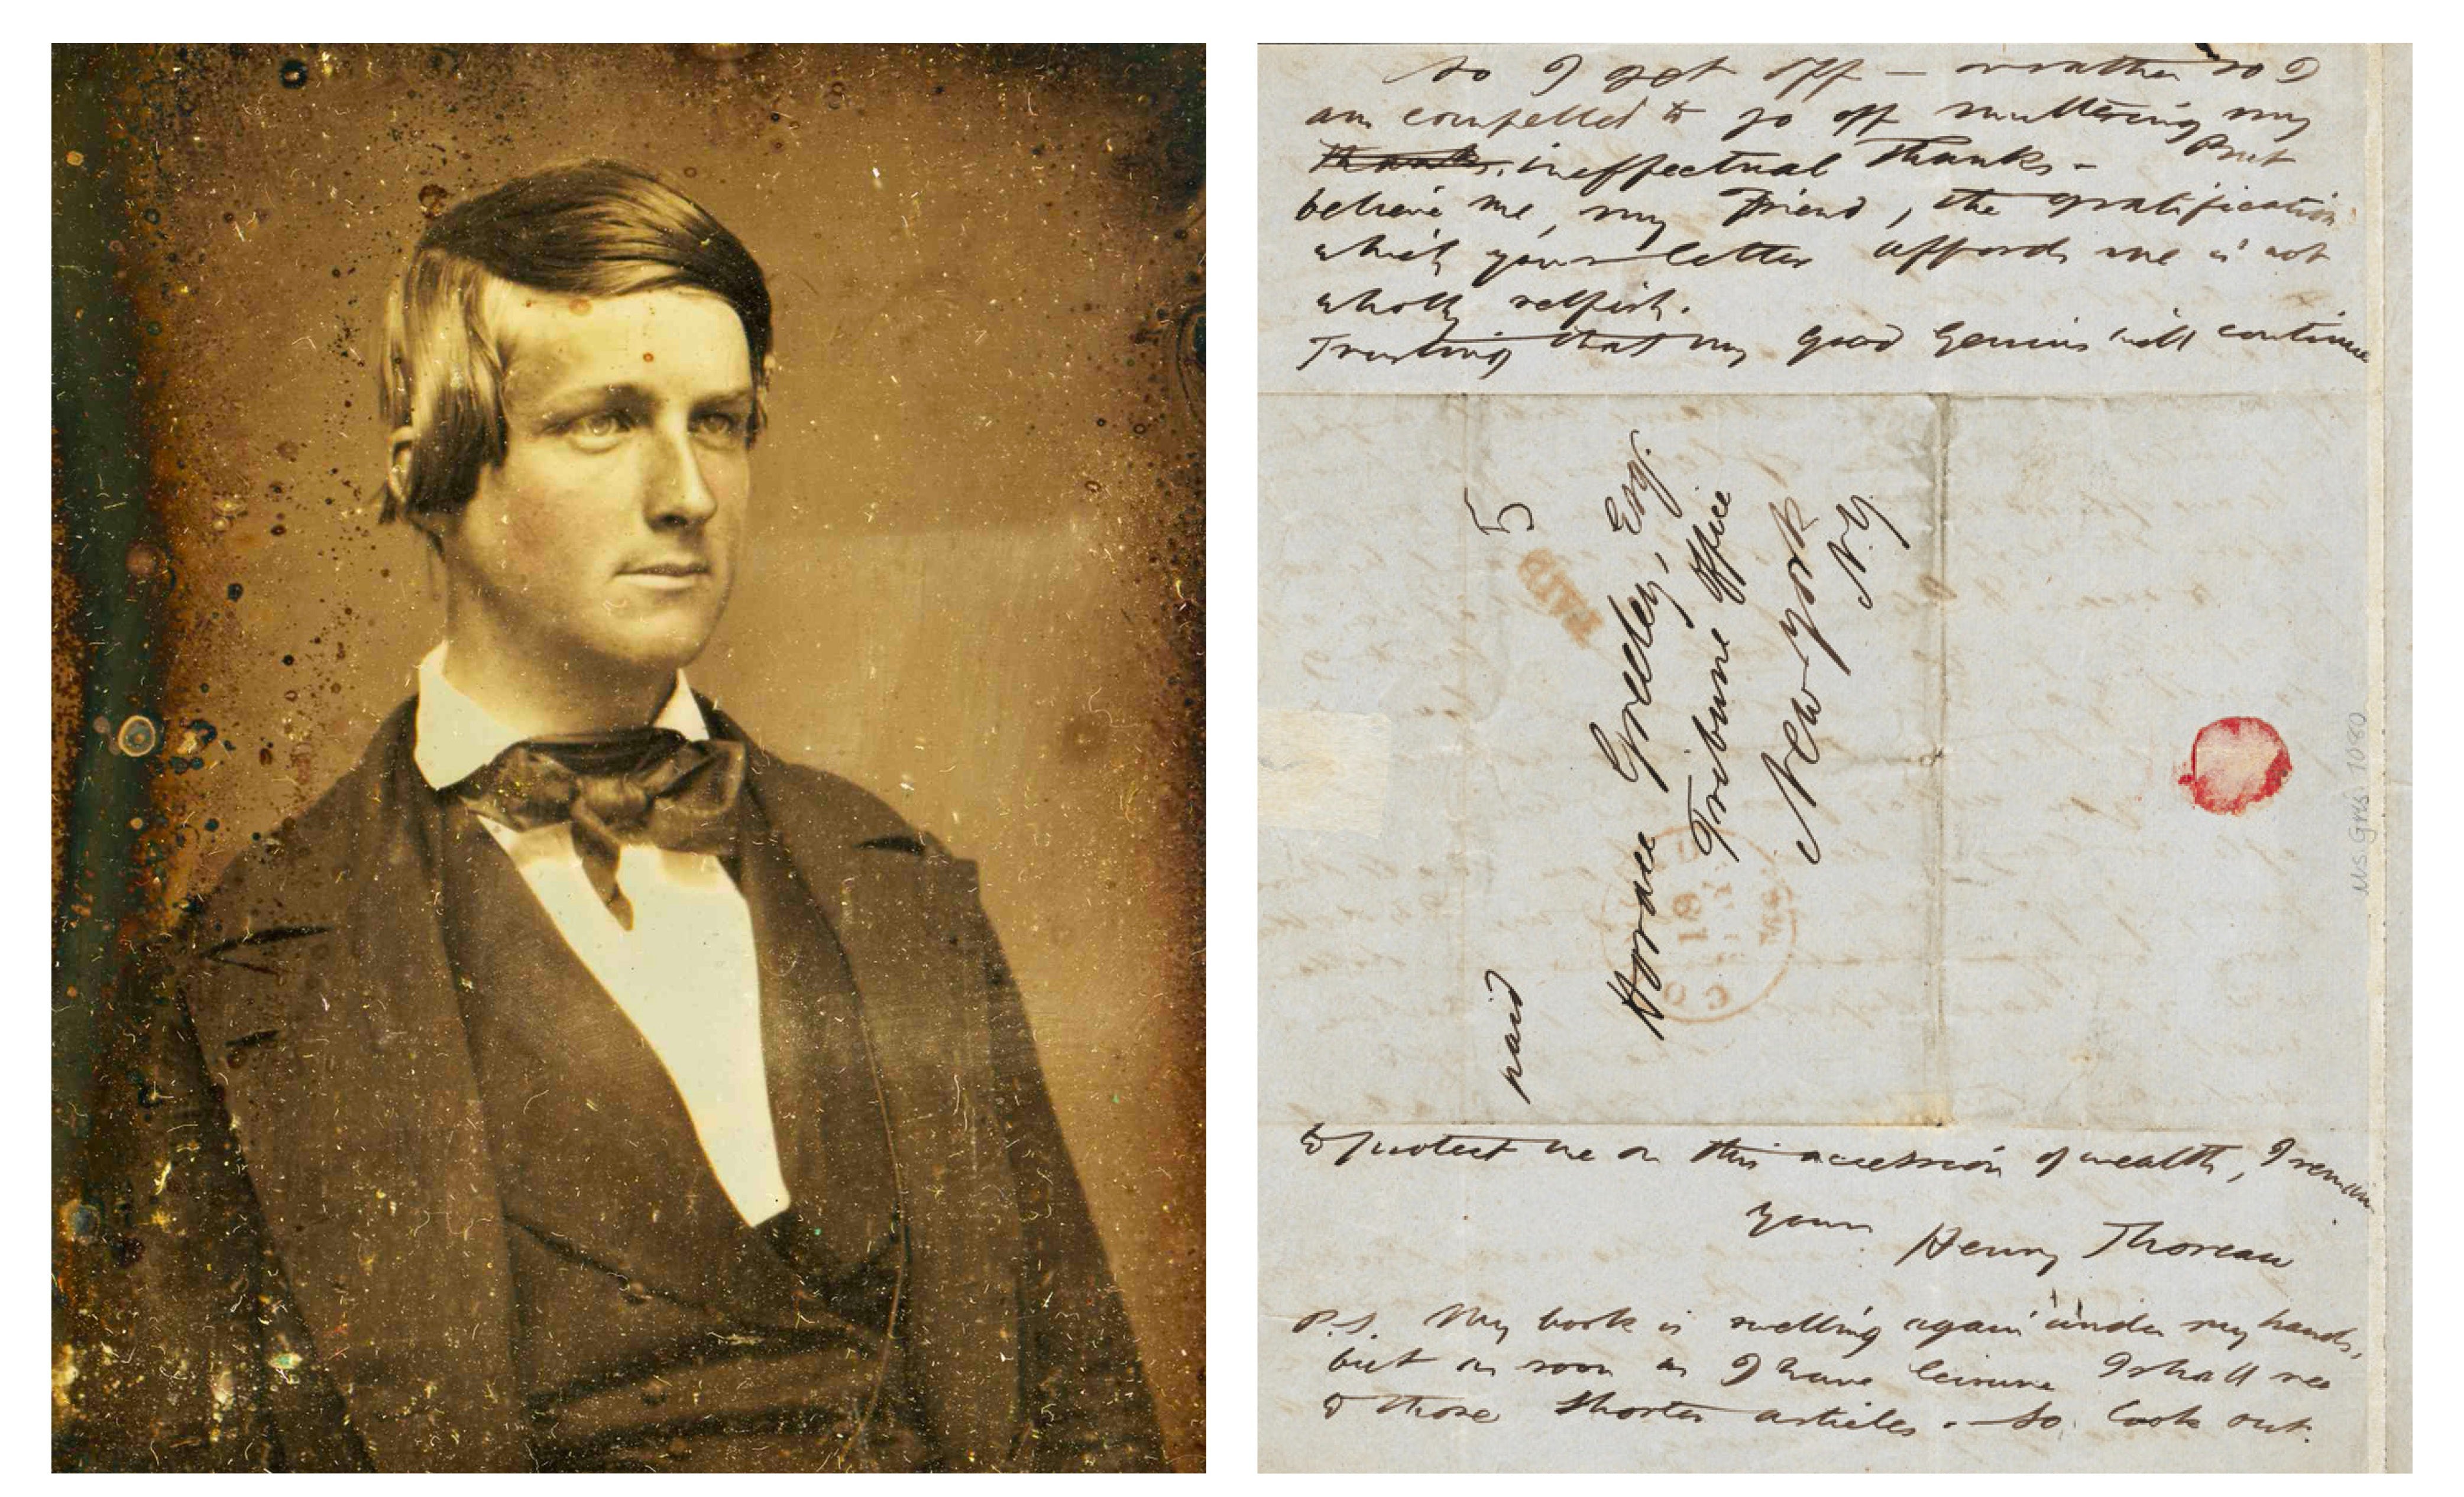 So I get off — or rather so I
am compelled to go off muttering my
thanks, ineffectual thanks - But
believe me, my Friend, the gratification
which your letter affords me is not
wholly selfish.
Trusting that my good Genius will continue
5
PAID
Horace Greeley, Esq.
Tribune Office
New York
N.Y.
paid
MS Gres. 1080
to protect me on this accession of wealth, I remain
Yours
Henry Thoreau
P.S. My book is swelling again under my hands,
but as soon as I have leisure I shall see
to those shorter articles. So, look out.